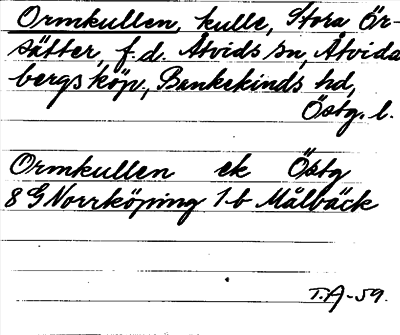 Ormkullen, kulle, Stora Ör-
sätter, f.d. Åtvids sn, Åtvida
bergs köp., Bankekinds hd,
Östg. l.
Ormkullen ek Östg
8 G Norrköping 1b Målbäck
T.A-59.